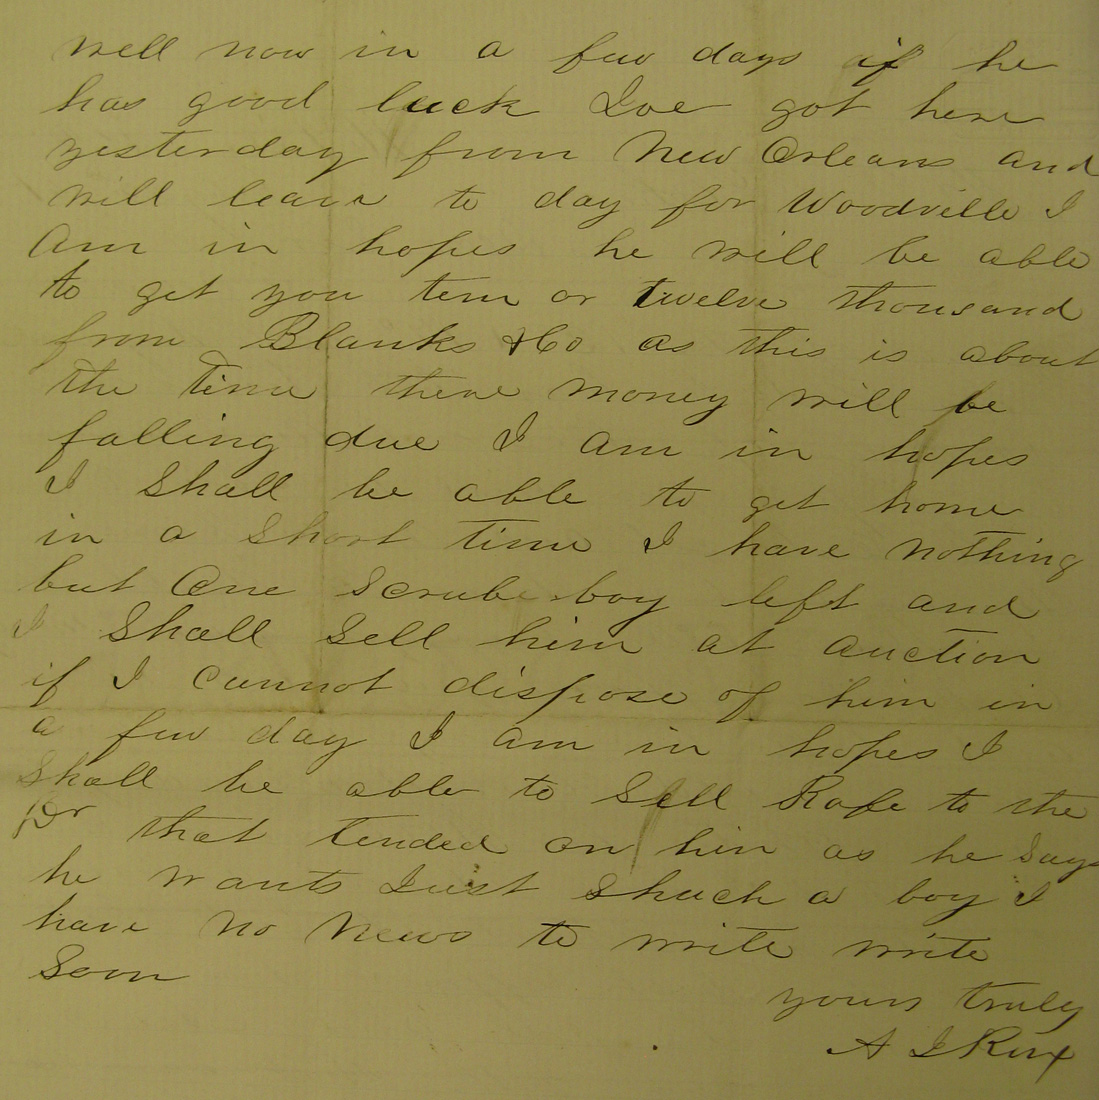 well now in a few days if he
has good luck Joe got here
yesterday from New Orleans and
will leave to day for Woodville I
am in hopes he will be able
to get you tenn or twelve thousand
from Blanks & Co as this is about
the time there money will be
falling due I am in hopes
I Shall be able to get home
in a Short time I have nothing
but One Scrube boy left and
I Shall Sell him at auction
if I cannot dispose of him in
a few day I am in hopes I
Shall be able to Sell Rafe to the
Dr that tended on him as he Says
he wants Just Shuch a boy I
have no news to write write
Soon
yours truly
A J Rux